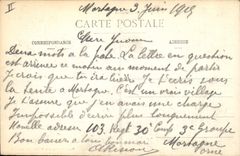 II
Mortagne 3 Juin 1915
CARTE POSTALE
CORRESPONDANCE
ADRESSE
Cher Yvonne
Deux mots à la hâte. La lettre en question
est arrivée ce matin au moment de partir
Je crois que tu iras bien. Je t'écris sous
la tente à Mortagne. C'est un vrai village
Je t'assure que j'en avais une charge
Impossible d'écrire plus longuement
adresse 103 Regt 30 Comp 3e Groupe
Bon baiser à tous
Mortagne
Orne